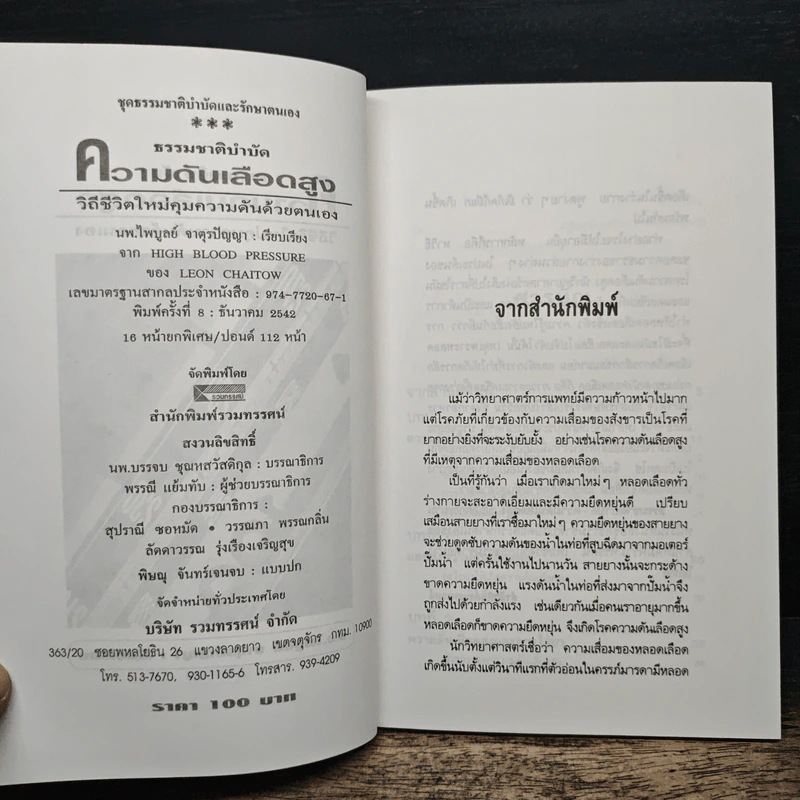 ชุดธรรมชาติบำบัดและรักษาตนเอง
***
ธรรมชาติบำบัด
ความดันเลือดสูง
วิถีชีวิตใหม่คุมความดันด้วยตนเอง
นพ.ไพบูลย์ จาตุรปัญญา : เรียบเรียง
จาก HIGH BLOOD PRESSURE
ของ LEON CHAITOW
เลขมาตรฐานสากลประจำหนังสือ : 974-7720-67-1
พิมพ์ครั้งที่ 8 : ธันวาคม 2542
16 หน้ายกพิเศษ/ปอนด์ 112 หน้า
จัดพิมพ์โดย
รวมทรรศน์
สำนักพิมพ์รวมทรรศน์
สงวนลิขสิทธิ์
นพ.บรรจบ ชุณหสวัสดิกุล : บรรณาธิการ
พรรณี แย้มทับ : ผู้ช่วยบรรณาธิการ
กองบรรณาธิการ :
สุปราณี ซอหมัด • วรรณภา พรรณกลิ่น
ลัดดาวรรณ รุ่งเรืองเจริญสุข
พิษณุ จันทร์เจนจบ : แบบปก
จัดจำหน่ายทั่วประเทศโดย
บริษัท รวมทรรศน์ จำกัด
363/20 ซอยพหลโยธิน 26 แขวงลาดยาว เขตจตุจักร กทม. 10900
โทร. 513-7670, 930-1165-6 โทรสาร. 939-4209
ราคา 100 บาท
จากสำนักพิมพ์
แม้ว่าวิทยาศาตร์การแพทย์มีความก้าวหน้าไปมาก
แต่โรคภัยที่เกี่ยวข้องกับความเสื่อมของสังขารเป็นโรคที่
ยากอย่างยิ่งที่จะระงับยับยั้ง อย่างเช่นโรคความดันเลือดสูง
ที่มีเหตุจากความเสื่อมของหลอดเลือด
เป็นที่รู้กันว่า เมื่อเราเกิดมาใหม่ๆ หลอดเลือดทั่ว
ร่างกายจะสะอาดเอี่ยมและมีความยืดหยุ่นดี เปรียบ
เสมือนสายยางที่เราซื้อมาใหม่ๆ ความยืดหยุ่นของสายยาง
จะช่วยดูดซับความดันของน้ำในท่อที่สูบฉีดมาจากมอเตอร์
ปั๊มน้ำ แต่ครั้นใช้งานไปนานวัน สายยางนั้นจะกระด้าง
ขาดความยืดหยุ่น แรงดันน้ำในท่อที่ส่งมาจากปั๊มน้ำจึง
ถูกส่งไปด้วยกำลังแรง เช่นเดียวกันเมื่อคนเราอายุมากขึ้น
หลอดเลือดก็ขาดความยืดหยุ่น จึงเกิดโรคความดันเลือดสูง
นักวิทยาศาสตร์เชื่อว่า ความเสื่อมของหลอดเลือด
เกิดขึ้นนับตั้งแต่วินาทีแรกที่ตัวอ่อนในครรภ์มารดามีหลอด